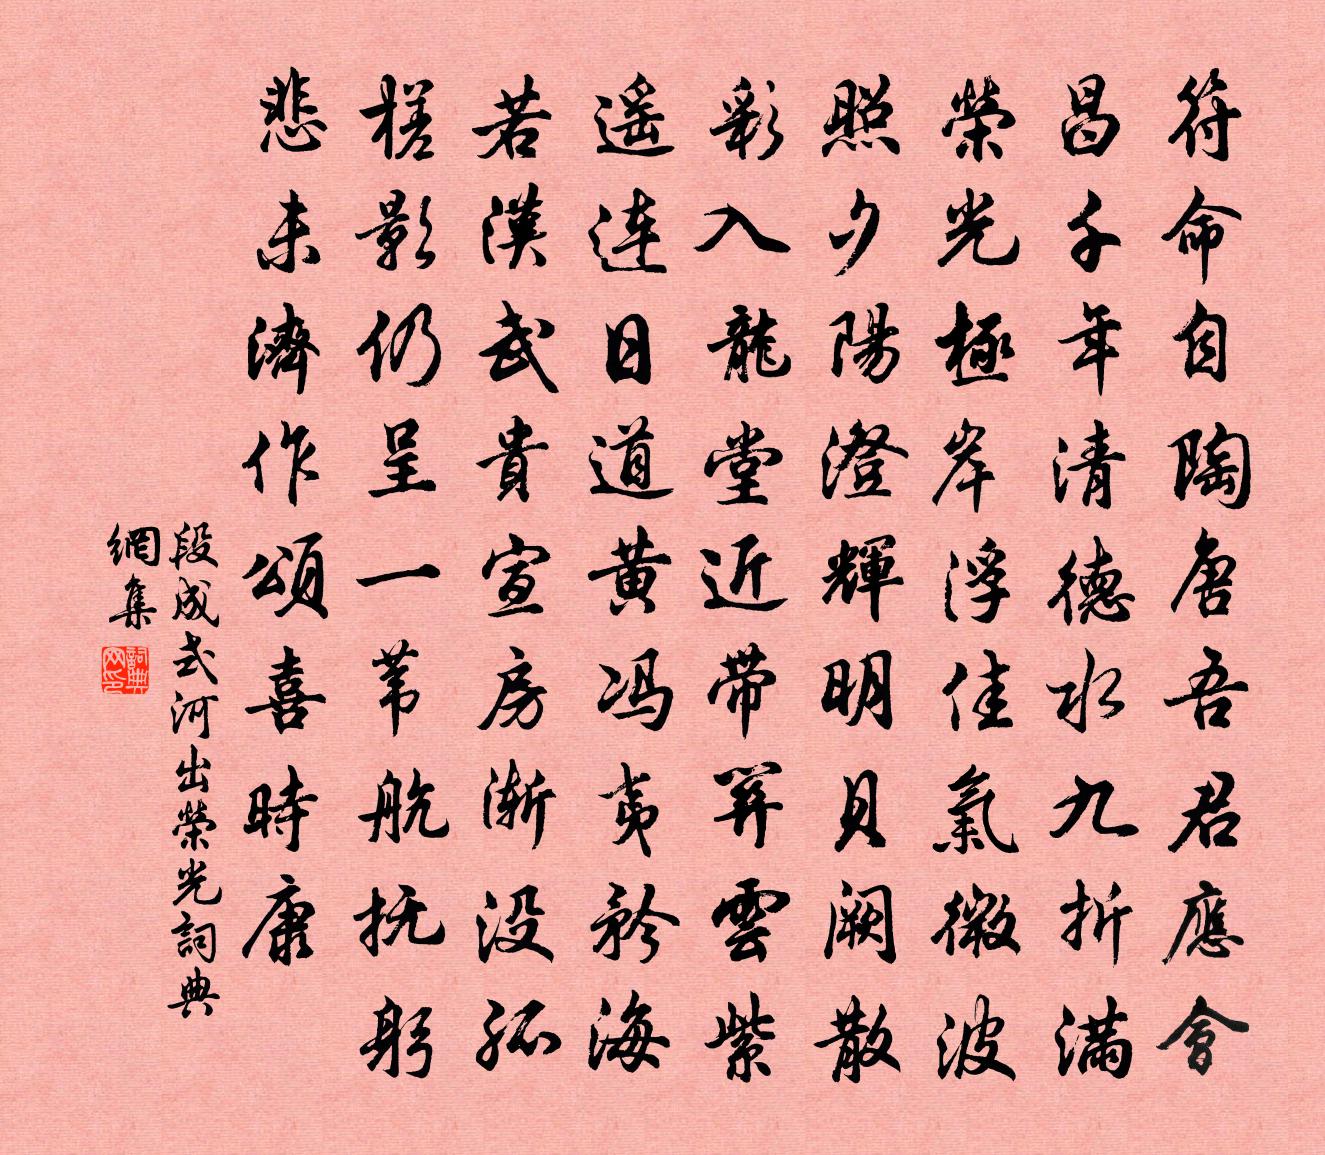 符命自陶唐吾君應會
昌千年清德水九折滿
榮光極岸浮佳氣微波
照夕陽澄輝明貝闕散
彩入龍堂近帶關雲紫
遥連日道黄馮夷矜海
若漢武貴宣房漸没孤
槎影仍呈一苇航抚躬
悲未濟作頌喜時康
段成式河出榮光詞典
網集
詞典網印